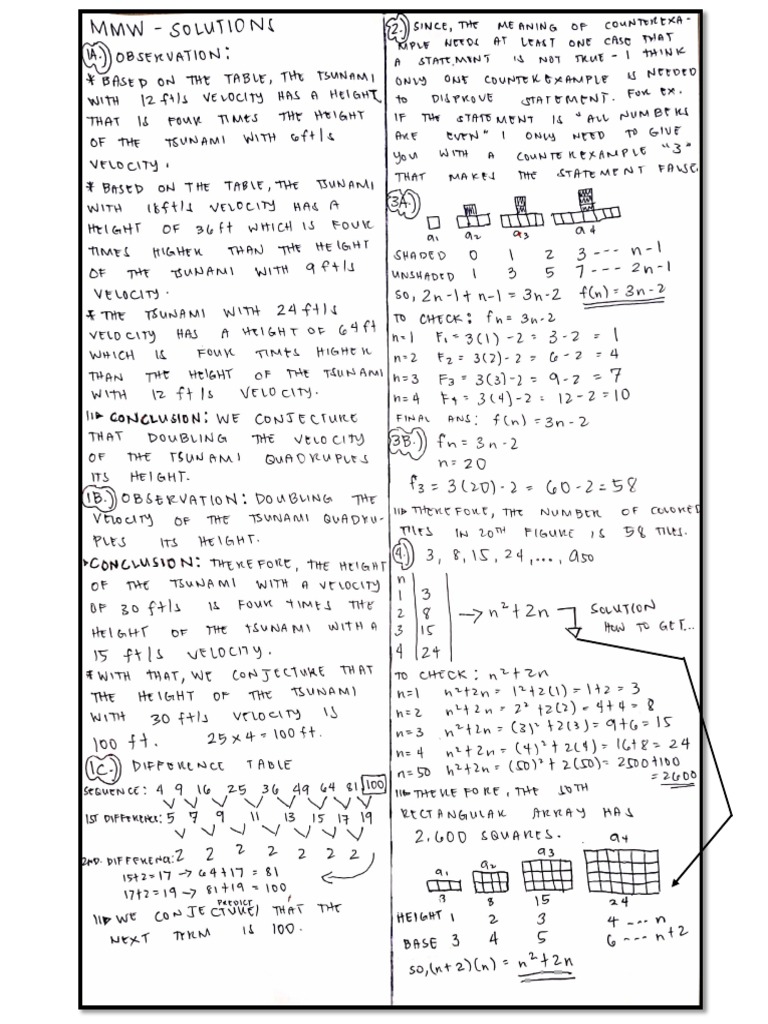 MMW - SOLUTIONS
1A.) OBSERVATION:
* BASED ON THE TABLE, THE TSUNAMI
WITH 12 ft/s VELOCITY HAS A HEIGHT
THAT IS FOUR TIMES THE HEIGHT
OF THE TSUNAMI WITH 6ft/s
VELOCITY.
* BASED ON THE TABLE, THE TSUNAMI
WITH 18ft/s VELOCITY HAS A
HEIGHT OF 36ft WHICH IS FOUR
TIMES HIGHER THAN THE HEIGHT
OF THE TSUNAMI WITH 9 ft/s
VELOCITY.
* THE TSUNAMI WITH 24 ft/s
VELOCITY HAS A HEIGHT OF 64ft
WHICH IS FOUR TIMES HIGHER
THAN THE HEIGHT OF THE TSUNAMI
WITH 12 ft/s VELOCITY.
CONCLUSION: WE CONJECTURE
THAT DOUBLING THE VELOCITY
OF THE TSUNAMI QUADRUPLES
ITS HEIGHT.
1B.) OBSERVATION: DOUBLING THE
VELOCITY OF THE TSUNAMI QUADRU-
PLES ITS HEIGHT.
CONCLUSION: THEREFORE, THE HEIGHT
OF THE TSUNAMI WITH A VELOCITY
OF 30 ft/s IS FOUR TIMES THE
HEIGHT OF THE TSUNAMI WITH A
15 ft/s VELOCITY.
* WITH THAT, WE CONJECTURE THAT
THE HEIGHT OF THE TSUNAMI
WITH 30 ft/s VELOCITY IS
100 ft. 25 x 4 = 100 ft.
1C.) DIFFERENCE TABLE
SEQUENCE: 4 9 16 25 36 49 64 81 100
1ST DIFFERENCE: 5 7 9 11 13 15 17 19
2ND. DIFFERENCE: 2 2 2 2 2 2 2
15+2=17 → 64+17 = 81
17+2=19 → 81+19 = 100
PREDICT
WE CONJECTURE/ THAT THE
NEXT TERM IS 100.
2.) SINCE, THE MEANING OF COUNTEREXA-
MPLE NEEDS AT LEAST ONE CASE THAT
A STATEMENT IS NOT TRUE - I THINK
ONLY ONE COUNTEREXAMPLE IS NEEDED
to DISPROVE STATEMENT. FOR EX.
IF THE STATEMENT IS "ALL NUMBERS
ARE EVEN" I ONLY NEED TO GIVE
YOU WITH A COUNTEREXAMPLE "3"
THAT MAKES THE STATEMENT FALSE.
3A.)
a1 a2 a3 a4
SHADED 0 1 2 3 --- n-1
UNSHADED 1 3 5 7 --- 2n-1
SO, 2n-1 + n-1 = 3n-2 f(n) = 3n-2
TO CHECK: fn = 3n-2
n=1 F1 = 3(1) - 2 = 3-2 = 1
n=2 F2 = 3(2) - 2 = 6-2 = 4
n=3 F3 = 3(3) - 2 = 9-2 = 7
n=4 F4 = 3(4) - 2 = 12-2 = 10
FINAL ANS: f(n) = 3n-2
3B.) fn = 3n-2
n = 20
f3 = 3(20) - 2 = 60-2 = 58
THEREFORE, THE NUMBER OF COLORED
TILES IN 20TH FIGURE IS 58 TILES.
4.) 3, 8, 15, 24, ..., a50
n
1 3
2 8
3 15
4 24
→ n²+2n
SOLUTION
HOW TO GET...
TO CHECK: n²+2n
n=1 n²+2n = 1²+2(1) = 1+2 = 3
n=2 n²+2n = 2²+2(2) = 4+4 = 8
n=3 n²+2n = (3)²+2(3) = 9+6 = 15
n=4 n²+2n = (4)²+2(4) = 16+8 = 24
n=50 n²+2n = (50)²+2(50) = 2500+100
= 2600
THEREFORE, THE 50TH
RECTANGULAR ARRAY HAS
2,600 SQUARES.
a1 a2 a3 a4
3 8 15 24
HEIGHT 1 2 3 4 --- n
BASE 3 4 5 6 --- n+2
SO, (n+2)(n) = n²+2n